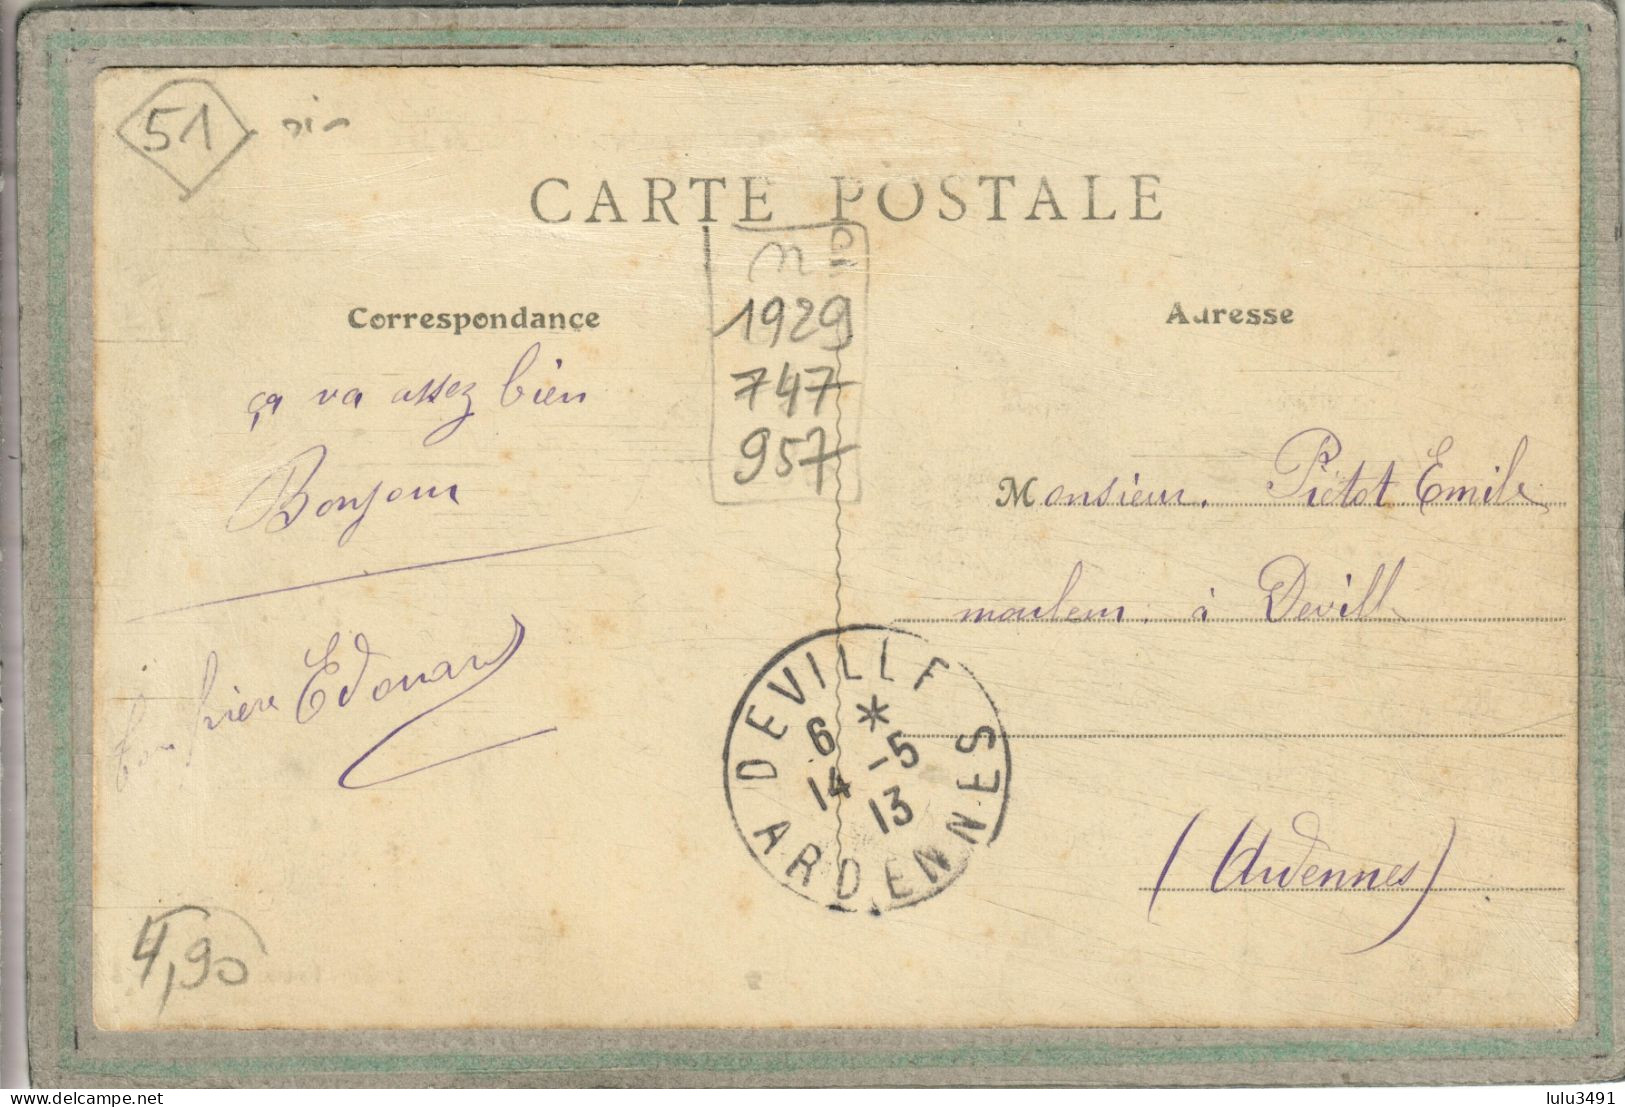 51
CARTE POSTALE
nº
1929
747
957
Correspondance
ça va assez bien
Bonjour
ton frère Edouard
4,90
Adresse
Monsieur. Pietot Emile
mouleur. à Deville
(Ardennes)
DEVILLE
*
6 -5
14 13
ARDENNES
delcampe.net
lulu3491